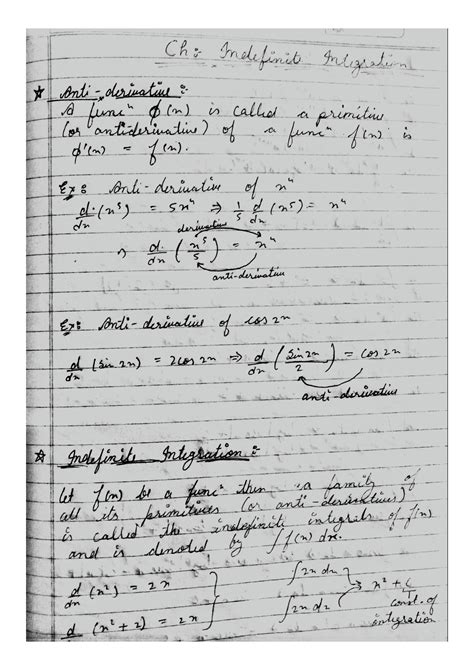 Ch: Indefinit Integration
☆ Anti-derivative:
A funcⁿ ϕ(x) is called a primitive
(or antiderivative) of a funcⁿ f(x) is
ϕ'(x) = f(x).
Ex: Anti-derivative of x⁴
d/dx (x⁵) = 5x⁴ ⇒ 1/5 d/dx (x⁵) = x⁴
derivative
⇒ d/dx (x⁵/5) = x⁴
anti-derivative
Ex: Anti-derivative of cos2x
d/dx (sin 2x) = 2cos2x ⇒ d/dx (sin2x/2) = cos2x
anti-derivative
☆ Indefinite Integration:
Let f(x) be a funcⁿ then a family of
all its primitives (or anti-derivatives)
is called the indefinite integrals of f(x)
and is denoted by ∫f(x) dx.
d/dx (x²) = 2x ∫2x dx
→ x² + c
d/dx (x² + 2) = 2x ∫2x dx
const. of
integration